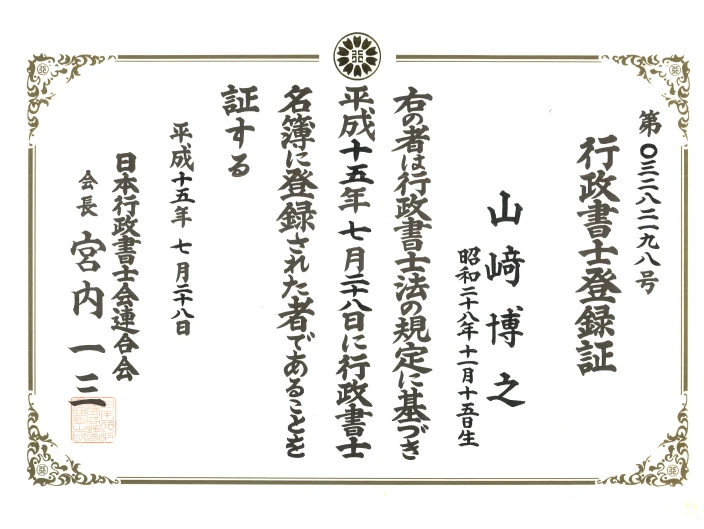 第〇三二八二一九八号
行政書士登録証
山﨑博之
昭和二十八年十一月十五日生
右の者は行政書士法の規定に基づき
平成十五年七月二十八日に行政書士
名簿に登録された者であることを
証する
平成十五年七月二十八日
日本行政書士会連合会
会長 宮内一三